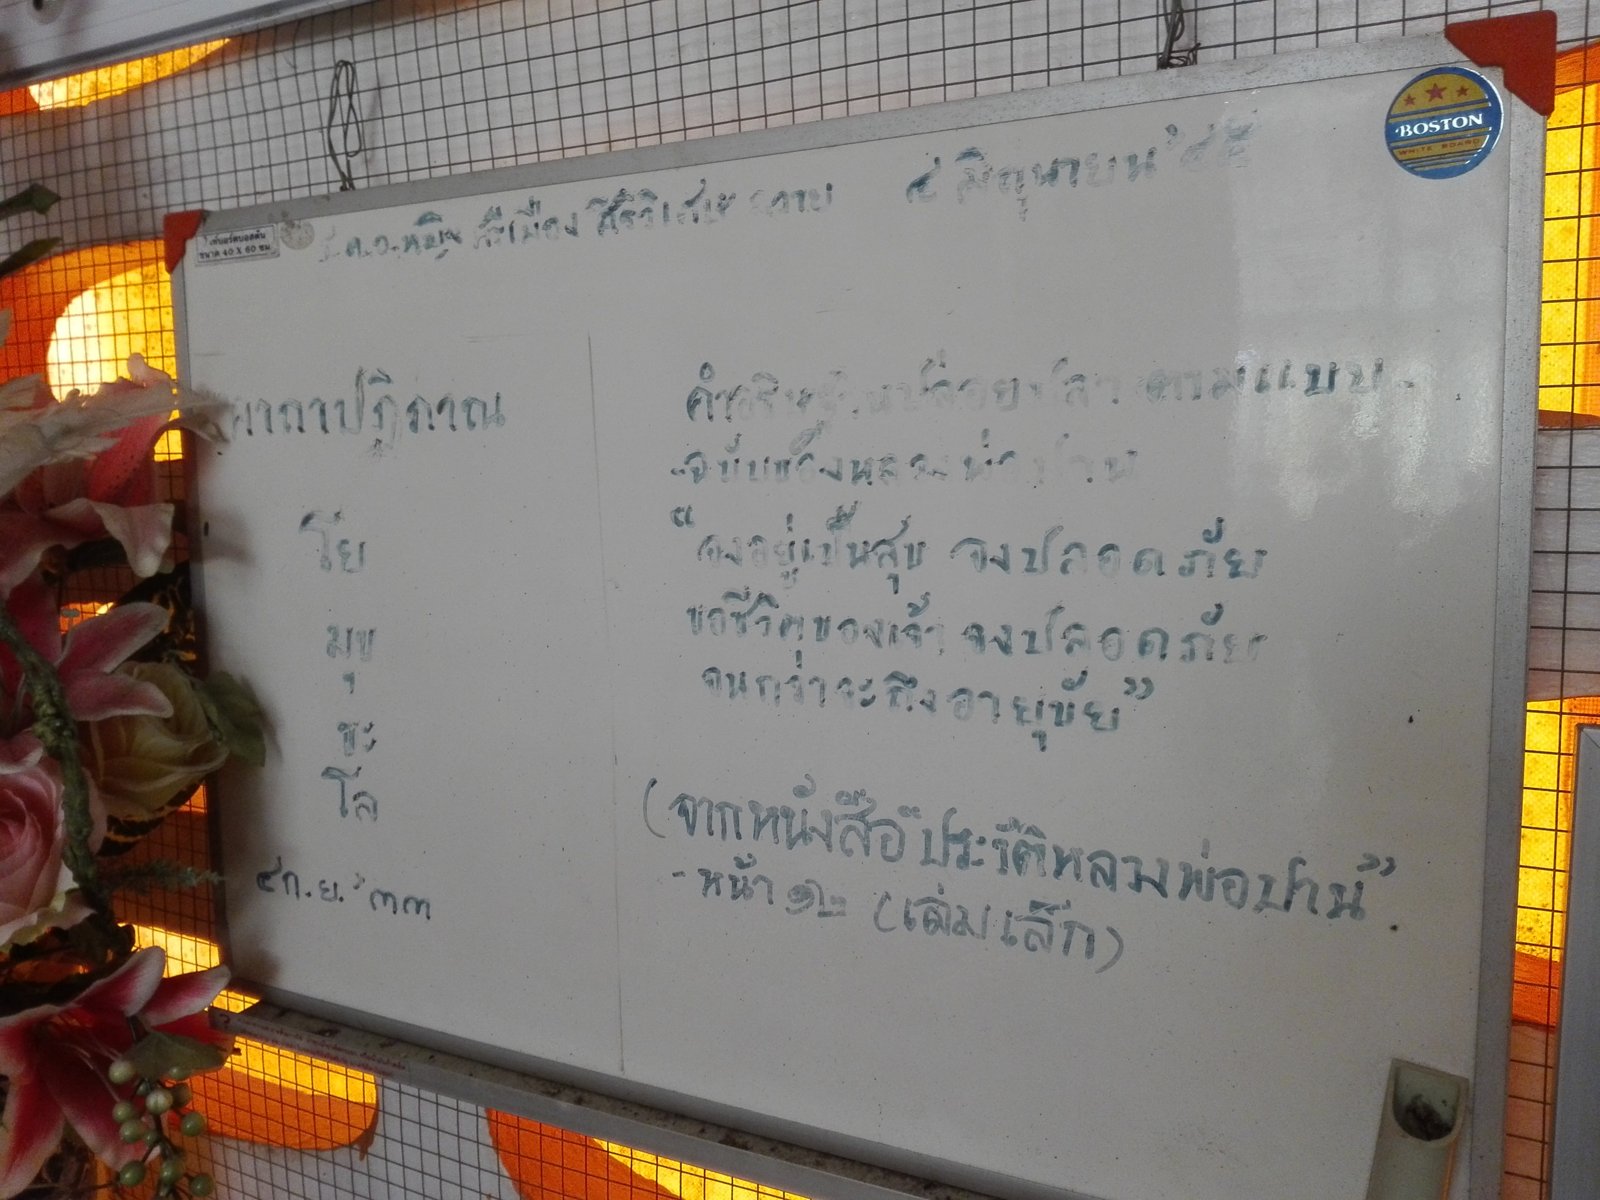 BOSTON
WHITE BOARD
ขนาด 40 X 60 ซม.
ร.ต.อ.หญิง ศรีเมือง ศิริวิเศษ ๔ มิถุนายน
คาถาปฏิภาณ
โย
มุข
ซะ
โล
๔ ก.ย. '๓๓
คำอธิษฐานปล่อยปลา ตามแบบ-
-ฉบับของหลวงพ่อปาน
"จงอยู่เป็นสุข จงปลอดภัย
ขอชีวิตของเจ้า จงปลอดภัย
จนกว่าจะถึงอายุขัย"
(จากหนังสือ"ประวัติหลวงพ่อปาน"
-หน้า ๑๒ (เล่มเล็ก)